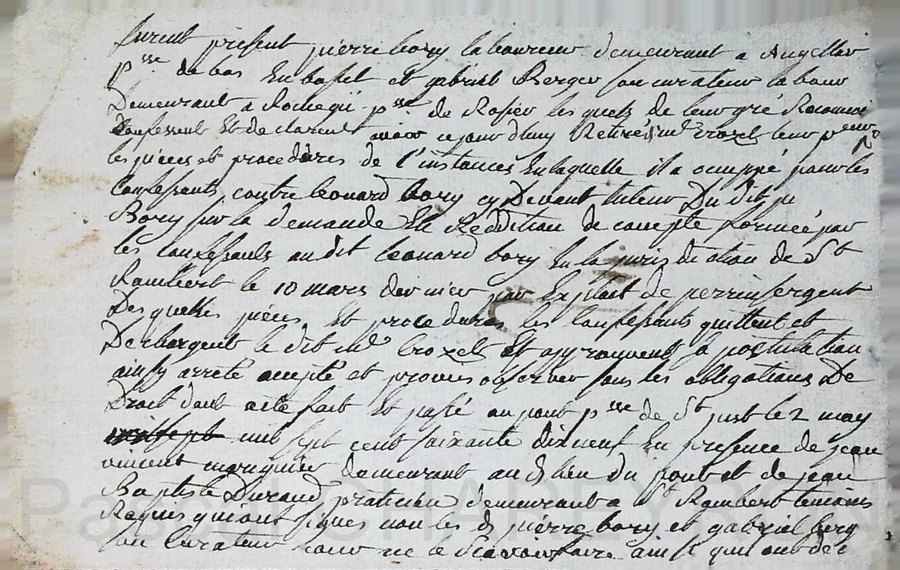 furent présent pierre bory laboureur demeurant a
psse de bas En baset et gabriel Berger son curateur labour
Demeurant a Rochegû psse de Rosier lesquels de leur gré
Confessent Et declarent avoir ce jourdhuy Retiré de me Crozet leur
les pièces et procedures de l'instance En laquelle il a occuppé pour les
Confessants contre leonard bory cy Devant tuteur Du dit
Bory sur la demande En Reddition de compte formée par
les confessants audit leonard bory En la jurisdiction de St
Rambert le 10 mars dernier par Exploit de perrin sergent
Desquelles pièces Et procedures les Confessants quittent et
Dechargent le dit me Crozet Et approuvent sa postulation
ainsy arreté accepté et promis observer sous les obligations De
Droit dont acte fait Et passé au pont psse de St just le 2 may
mil sept cent soixante dix neuf En presence de jean
vincent demeurant au d lieu du pont et de jean
Baptiste Durand praticien demeurant a St Rambert temoins
Requis qui ont signés non les d pierre bory et gabriel berg
son Curateur pour ne le sçavoir faire ainsi qui ont dec